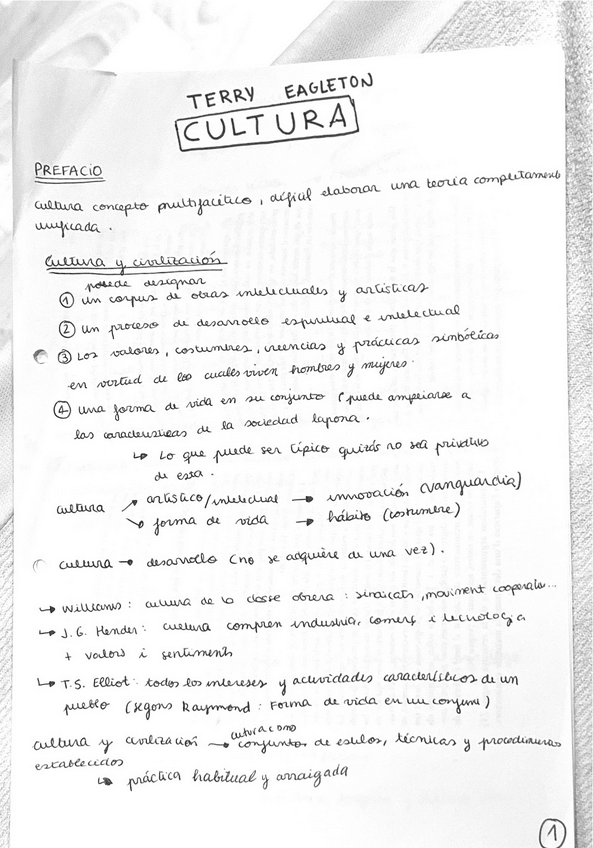 TERRY EAGLETON
CULTURA
PREFACIO
cultura concepto multifacético, difícil elaborar una teoría completament
unificada.
Cultura y civilización
puede designar
① un corpus de obras intelectuales y artísticas
② un proceso de desarrollo espiritual e intelectual
③ Los valores, costumbres, creencias y prácticas simbólicas
en virtud de los cuales viven hombres y mujeres.
④ una forma de vida en su conjunto (puede ampliarse a
las características de la sociedad lapona.
↳ Lo que puede ser típico quizás no sea privativo
de esta.
cultura ↗ artístico/intelectual → innovación (vanguardia)
↘ forma de vida → hábito (costumbre)
cultura → desarrollo (no se adquiere de una vez).
↳ Williams: cultura de la classe obrera: sindicats, moviment cooperatiu...
↳ J.G. Hender: cultura compren industria, comerç i tecnologia
+ valors i sentiments
↳ T.S. Elliot: todos los intereses y actividades característicos de un
pueblo (segons Raymond: Forma de vida en un conjunt)
cultura y civilización → cultura como conjuntos de estilos, técnicas y procedimientos
establecidos
↳ práctica habitual y arraigada
1